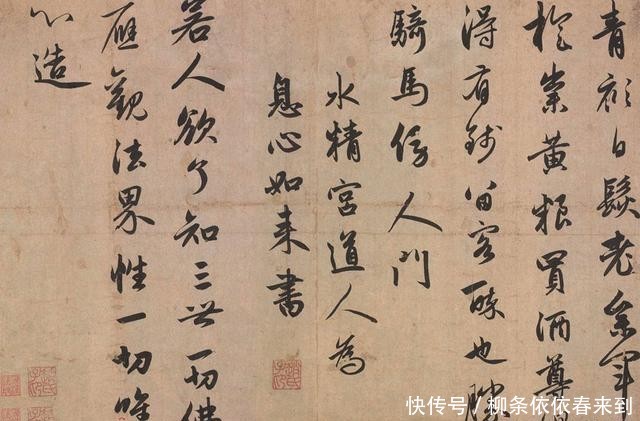 青衫白髮老參軍
旋糶黃粮買酒尊但
得有錢留客醉也勝
騎馬傍人門
水精宮道人為
息心如来書
若人欲了知三世一切佛
應觀法界性一切唯
心造
快传号/柳条依依春来到